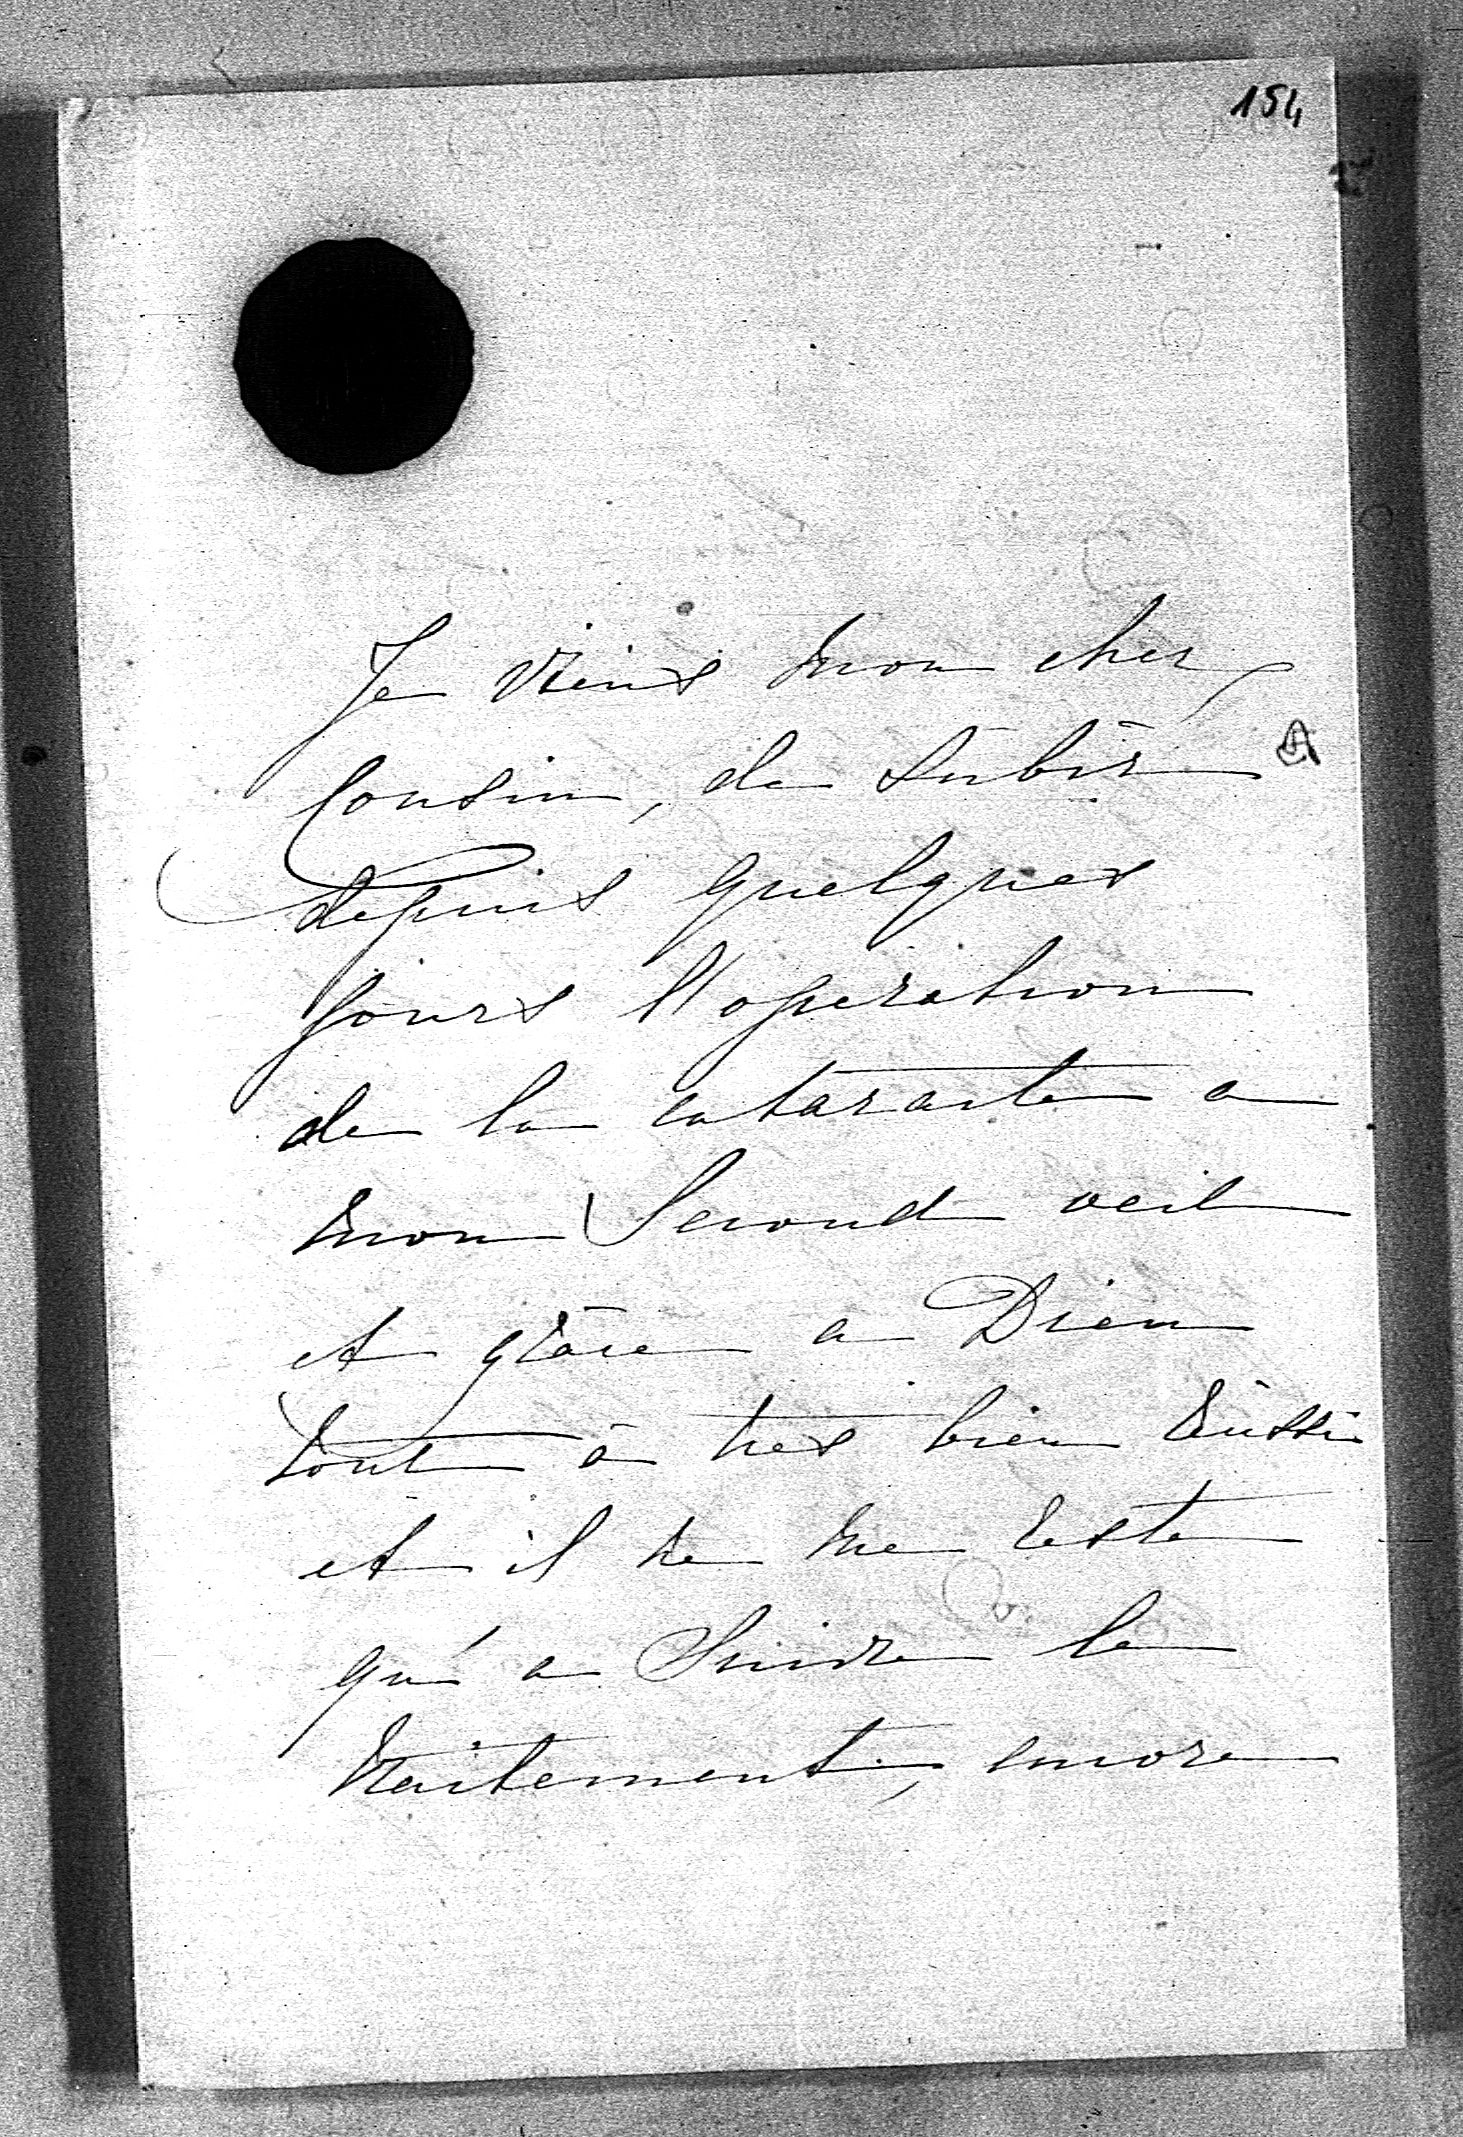 154
Je viens mon cher,
Cousin, de subir
depuis quelques
jours l'operation
de la cataracte a
mon Second oeil
et grâce a Dieu
tout à tres bien réussi
et il ne me reste
qu'a Suivre le
traitement, encore